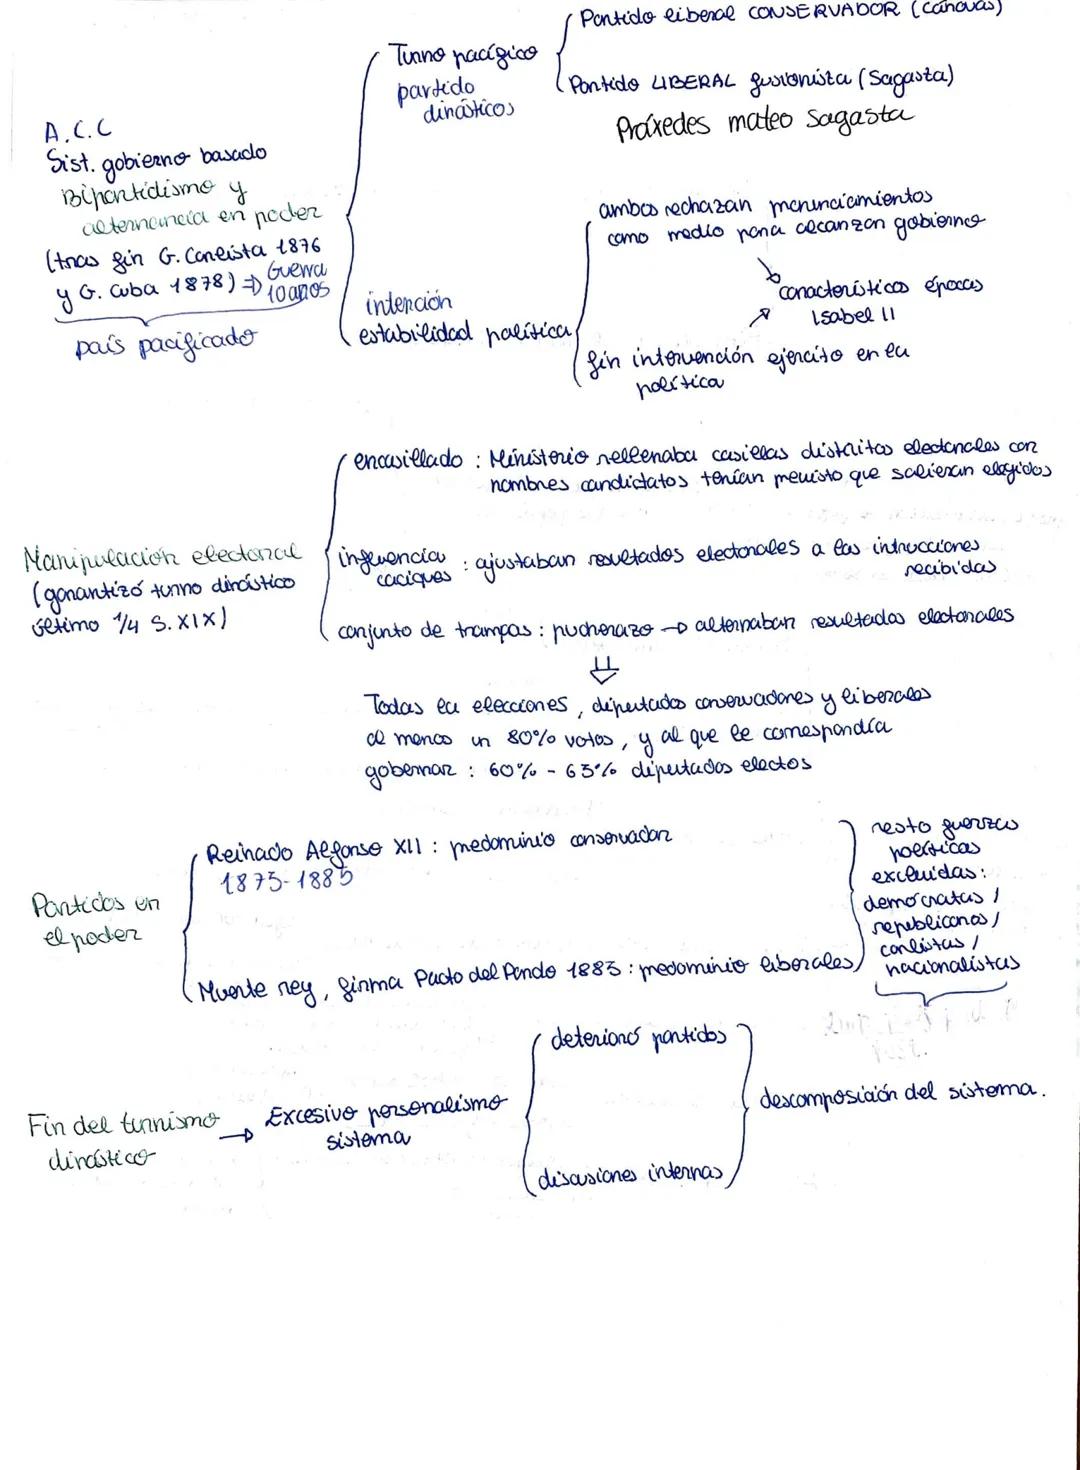 Partido liberal CONSERVADOR (Cánovas)
Turno pacífico
partido
dinásticos
Partido LIBERAL fusionista (Sagasta)
Práxedes mateo Sagasta
A.C.C
Sist. gobierno basado
Bipartidismo y
alternancia en poder
(tras fin G. Carlista 1876
y G. Cuba 1878) ⇒ Guerra
10 años
país pacificado
intención
estabilidad política
ambos rechazan pronunciamientos
como medio para alcanzar gobierno
características épocas
Isabel II
fin intervención ejercito en la
política
Manipulación electoral
(garantizó turno dinástico
último 1/4 S. XIX)
encasillado : Ministerio rellenaba casillas distritos electorales con
nombres candidatos tenían previsto que salieran elegidos
influencia
caciques : ajustaban resultados electorales a las intrucciones
recibidas
conjunto de trampas : pucherazo → alternaban resultados electorales
⇓
Todas la elecciones, diputados conservadores y liberales
al menos un 80% votos, y al que le correspondía
gobernar : 60% - 65% diputados electos
Partidos en
el poder
Reinado Alfonso XII : predominio conservador
1875-1885
Muerte rey, firma Pacto del Pardo 1885 : predominio liberales
resto fuerzas
políticas
excluidas:
demócratas /
republicanos /
carlistas /
nacionalistas
Fin del turnismo
dinástico
→ Excesivo personalismo
sistema
deterioró partidos
discusiones internas
descomposición del sistema.